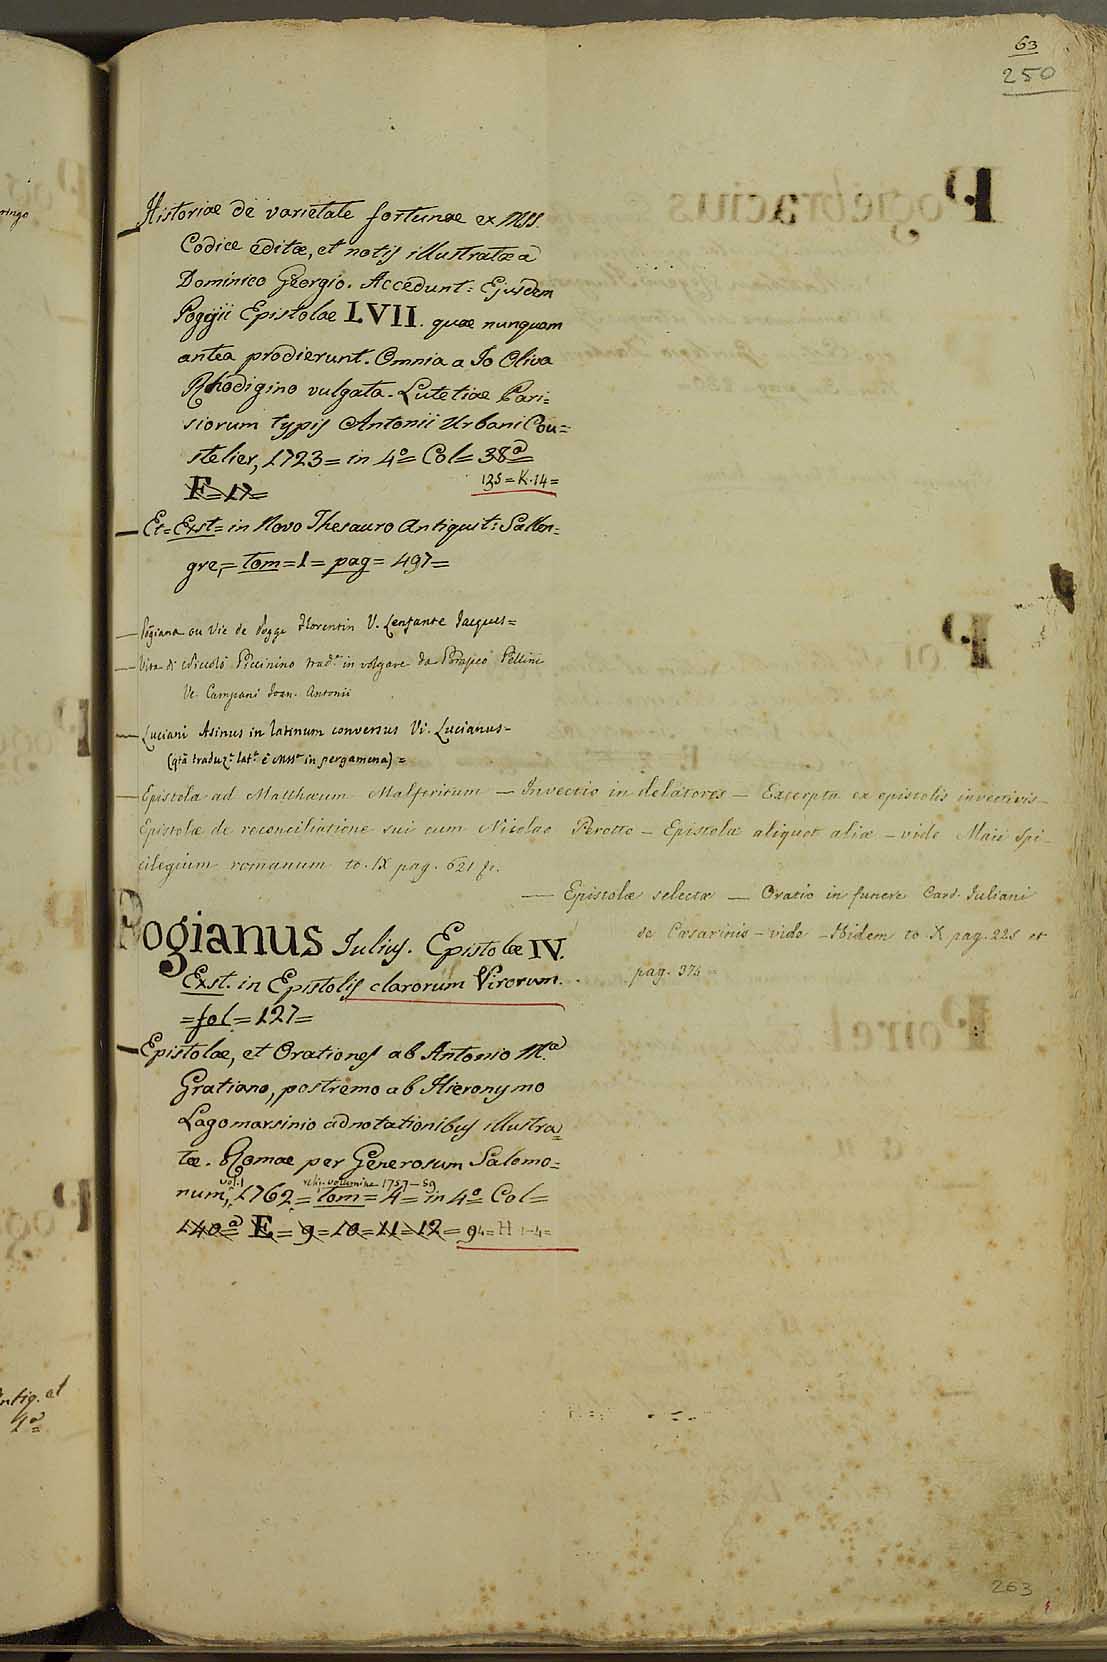 63
250
Historiae de varietate fortunae ex MSS.
Codice editae, et notis illustratae a
Dominico Georgio. Accedunt: Ejusdem
Poggii Epistolae LVII. quae nunquam
antea prodierunt. Omnia a Jo Oliva
Rhodigino vulgata. Lutetiae Pari=
siorum typis Antonii Urbani Cou=
stelier, 1723 = in 4º = Col = 38ª =
F = 17 =
135 = K. 14 =
Et = Exst = in Novo Thesauro Antiquit: Sallen=
gre, = tom = 1 = pag = 497 =
Pogiana ou Vie de Pogge Florentin V. Lenfante Jacques =
Vita di Niccolò Piccinino trad.ª in volgare da Pompeo Pellini
V. Campani Joan. Antonii
Luciani Asinus in latinum conversus Vi. Lucianus =
(qtã traduz.e lat.ª è Mss.º in pergamena) =
Epistola ad Matthæum Malferitum — Invectio in delatores — Excerpta ex epistolis invectivis —
Epistolæ de reconciliatione sui cum Nicolao Perotto — Epistolæ aliquot aliæ — vide Maii Spi-
cilegium romanum to. IX pag. 621
— Epistolæ selectæ — Oratio in funere Card. Juliani
de Cæsarinis — vide — Ibidem to. X pag. 225 et
pag. 374
Pogianus Julius. Epistolae IV.
Exst. in Epistolis clarorum Virorum.
= fol = 127 =
Epistolae, et Orationes ab Antonio M.ª
Gratiano, postremo ab Hieronymo
Lagomarsinio adnotationibus illustra=
tae. Romae per Generosum Salomo=
vol. 1 reliq. volumine 1757-59
num, 1762 = tom = 4 = in 4º = Col =
140ª E = 9 = 10 = 11 = 12 = 94 = H 1-4 =
ntiq. et
4ª =
263